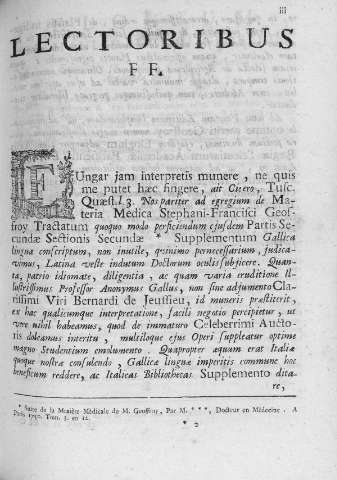 iii
LECTORIBUS
FF.
FUngar jam interpretis munere, ne quis
me putet hæc fingere, ait Cicero, Tusc.
Quæst. l. 3. Nos pariter ad egregium de Ma-
teria Medica Stephani-Francisci Geof-
froy Tractatum quoquo modo perficiendum ejusdem Partis Se-
cundæ Sectionis Secundæ * Supplementum Gallica
lingua conscriptum, non inutile, quinimo pernecessarium, judica-
vimus, Latina veste indutum Doctorum oculis subjicere. Quan-
ta, patrio idiomate, diligentia, ac quam varia eruditione Il-
lustrissimus Professor Anonymus Gallus, non sine adjumento Cla-
rissimi Viri Bernardi de Jeussieu, id muneris præstiterit,
ex hac qualicumque interpretatione, facili negotio percipietur, ut
vere nihil habeamus, quod de immaturo Celeberrimi Aucto-
ris doleamus interitu, multiloque ejus Operi suppleatur optime
magno Studentium emolumento. Quapropter æquum erat Italiæ
quoque nostræ consulendo, Gallicæ linguæ imperitis commune hoc
beneficium reddere, ac Italicas Bibliothecas Supplemento dita-
re,
* Suite de la Matière Médicale de M. Geoffroy, Par M. * * *, Docteur en Médecine. A
Paris 1750. Tom. 3. en 12.
* 2